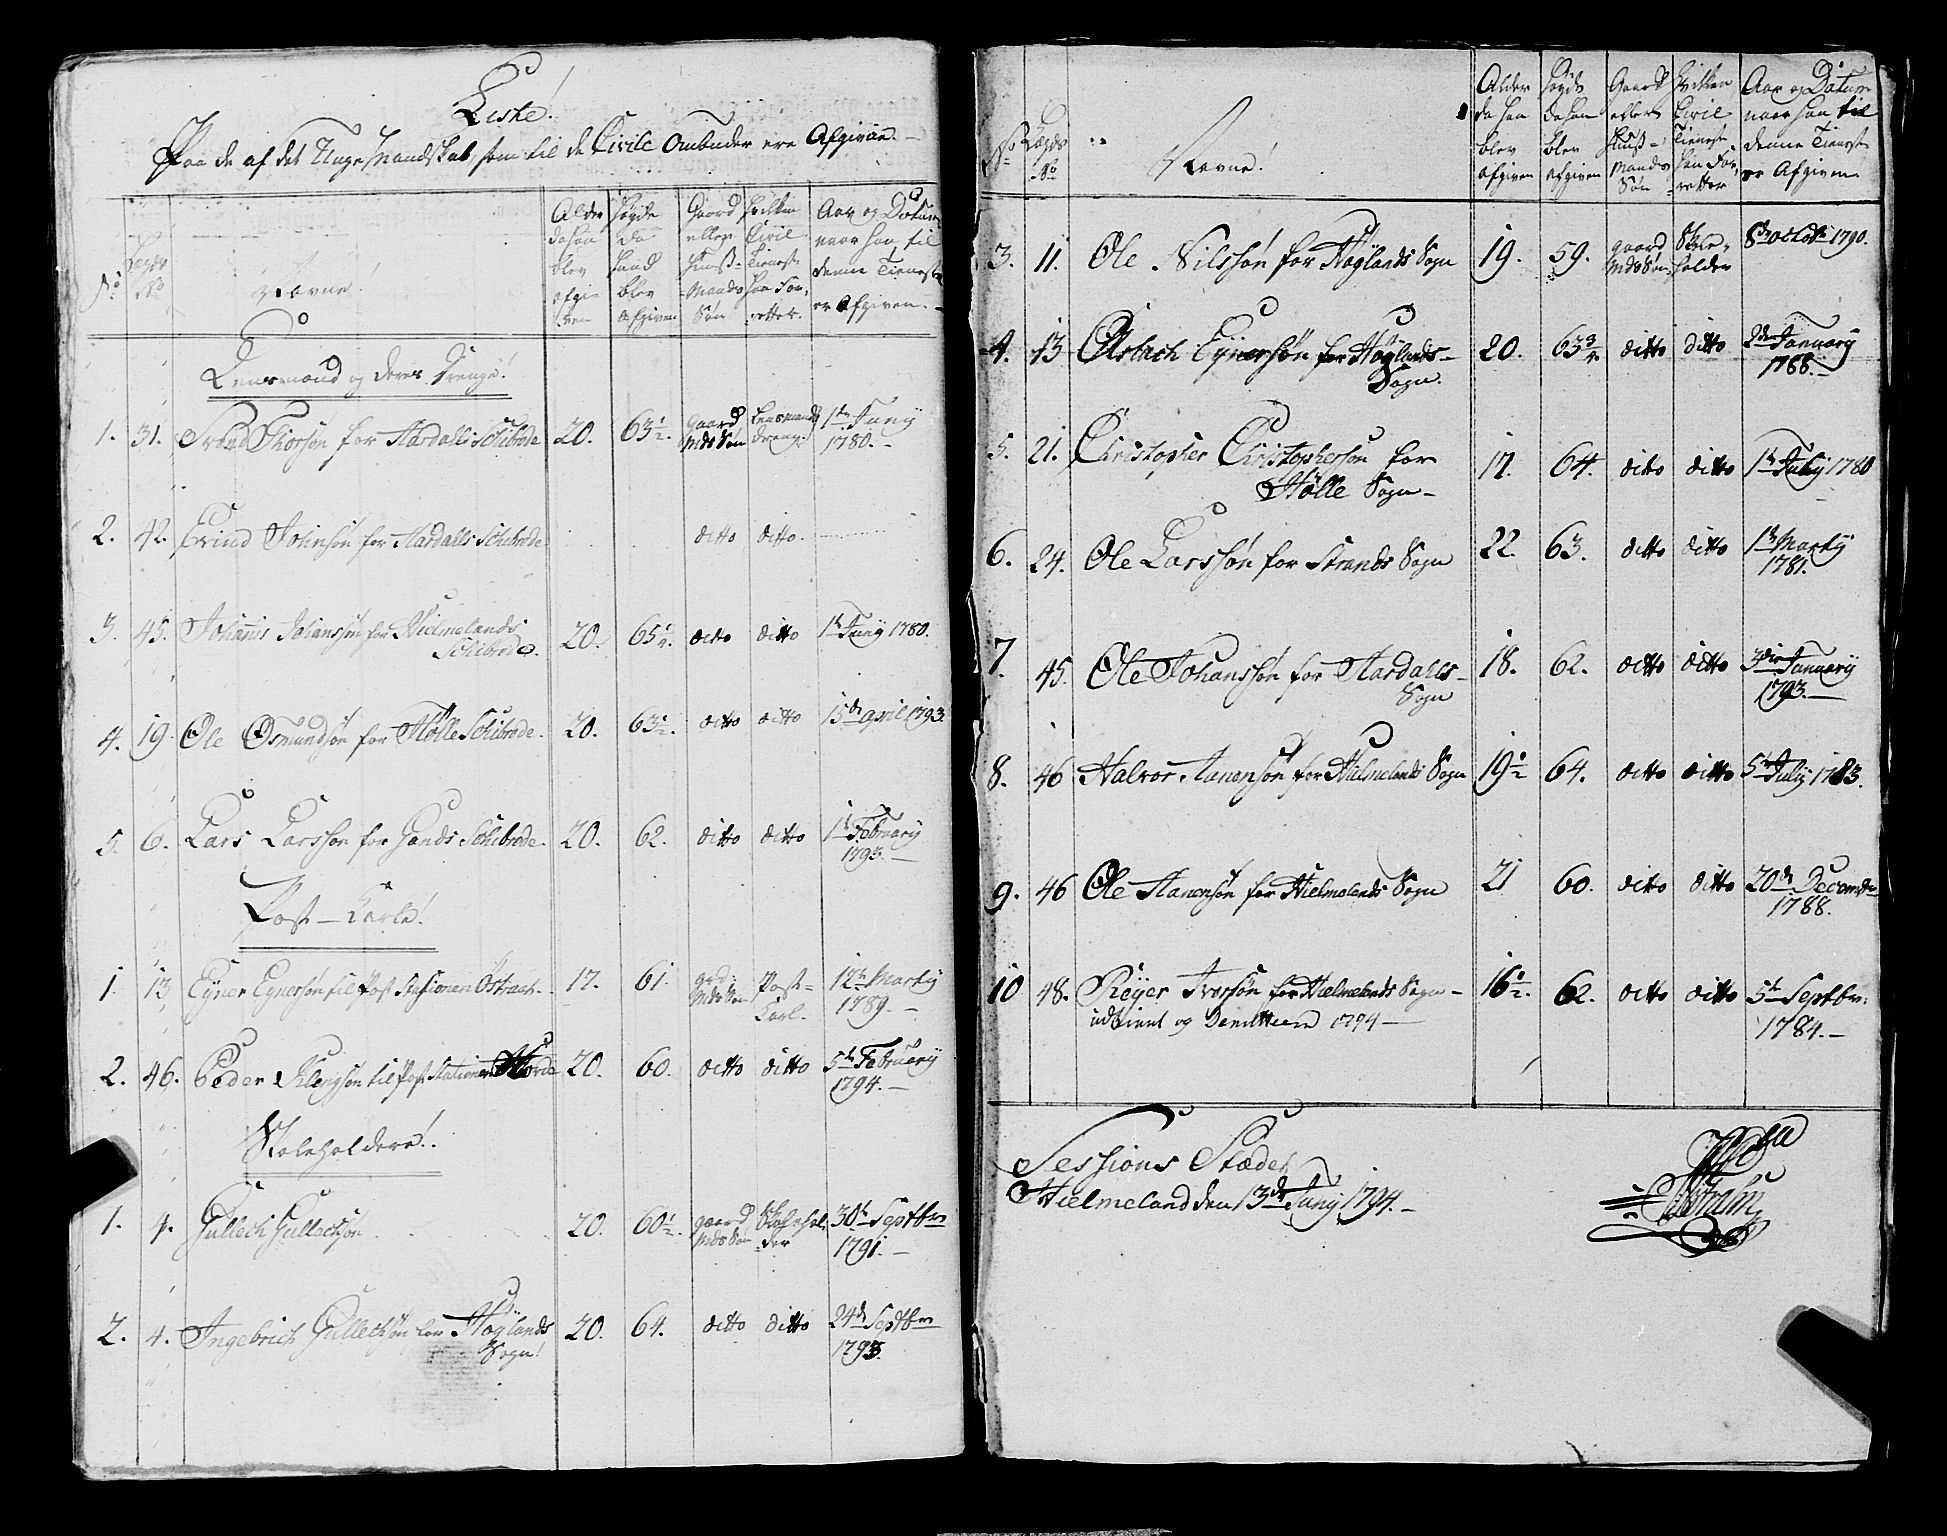 Liste!
Paa de af det Unge Mandskab som til de Civile Ombuder ere Afgivne. —
No
Lægds No
Navne!
Alder da han blev afgiven
Høyde da hand blev afgiven
Gaard eller Huuß-Mands Søn
Hvilken Civil Tieneste han For-retter.
Aar og Datum naar han til denne Tieneste er Afgiven.
Lensmænd og deres Drenge!
1. 31. Thorsøn for Aardalls Schibrede 20. 63½. gaard Mds Søn Lensmands dreng: 1te Juny
1780. —
2. 42. Evind Johnsøn for Aardalls Schibrede ditto ditto.
3. 45. Johanis Johansøn for Hielmelands
Schibrede. 20. 65¼. ditto ditto 1te Juny 1780.
4. 19. Ole Osmundsøn for Hølle Schibrede. 20. 63½. ditto ditto 15de april 1793.
5. 6. Lars Larssøn for Gands Schibrede. 20. 62. ditto ditto 1te February
1793. —
Post-Karle!
1 13 Eyner Eynersøn til Post Stationen Østraat. 17. 61. grd: Mds Søn Post-Karl. 12te Marty
1789. —
2. 46. Peder Klengsøn til Post Stationen 20. 60. ditto ditto 5te February
1794. —
Skoleholdere!
1. 4. Gullech Gullechsøn 20. 60½. gaard Mds Søn Skolehol-der 30te Septbr
1791. —
2. 4. Ingebrich Gullechsøn for Høylands
Sogn! 20. 64. ditto ditto 24de Septbr
1793.
No
Lægds No
Navne!
Alder da han blev afgiven
Høyde da han blev afgiven
Gaard eller Huuß-Mands Søn
Hvilken Civil Tieneste han For-retter
Aar og Datum naar han til denne Tieneste er Afgiven
3. 11. Ole Nilssøn for Høylands Sogn 19. 59. gaard Mds Søn Skole-holder 8de octobr 1790.
4. 13 Eynersøn for Høylands-
Sogn. 20. 63¾ ditto ditto 2den January
1788. —
5. 21. Christopher Christophersøn for
Hølle Sogn — 17. 64. ditto ditto 1te July 1780
6. 24. Ole Larssøn for Strands Sogn 22. 63. ditto ditto 1te Marty
1781.
7. 45. Ole Johanssøn for Aardalls-
Sogn 18. 62. ditto ditto 3die January
1793. —
8. 46 Halvor Aanensøn for Hielmelands Sogn 19½ 64. ditto ditto 5te July 1783.
9. 46 Ole Aanensøn for Hielmelands Sogn 21 60. ditto ditto 20de Decembr
1788.
10 48. Reyer Iversøn for Hielmelands Sogn — 16½. 62. ditto ditto 5te Septbr:
udtient og Demitteret 1794 — 1784. —
Sessions Stædet
Hielmeland den 13de Juny 1794. —